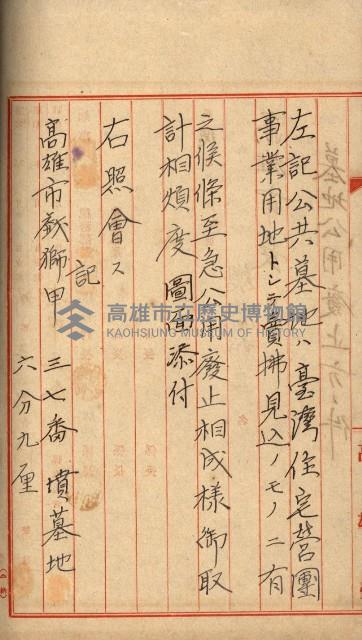 墓地公用廢止方ノ件
左記公共墓地ハ臺灣住宅營團
事業用地トシテ賣拂見込ノモノニ有
之候條至急公用廢止相成様御取
計相煩度 圖面添付
右照會ス
記
高雄市戯獅甲 三七番 墳墓地
六分九厘
高雄市立歷史博物館
KAOHSIUNG MUSEUM OF HISTORY